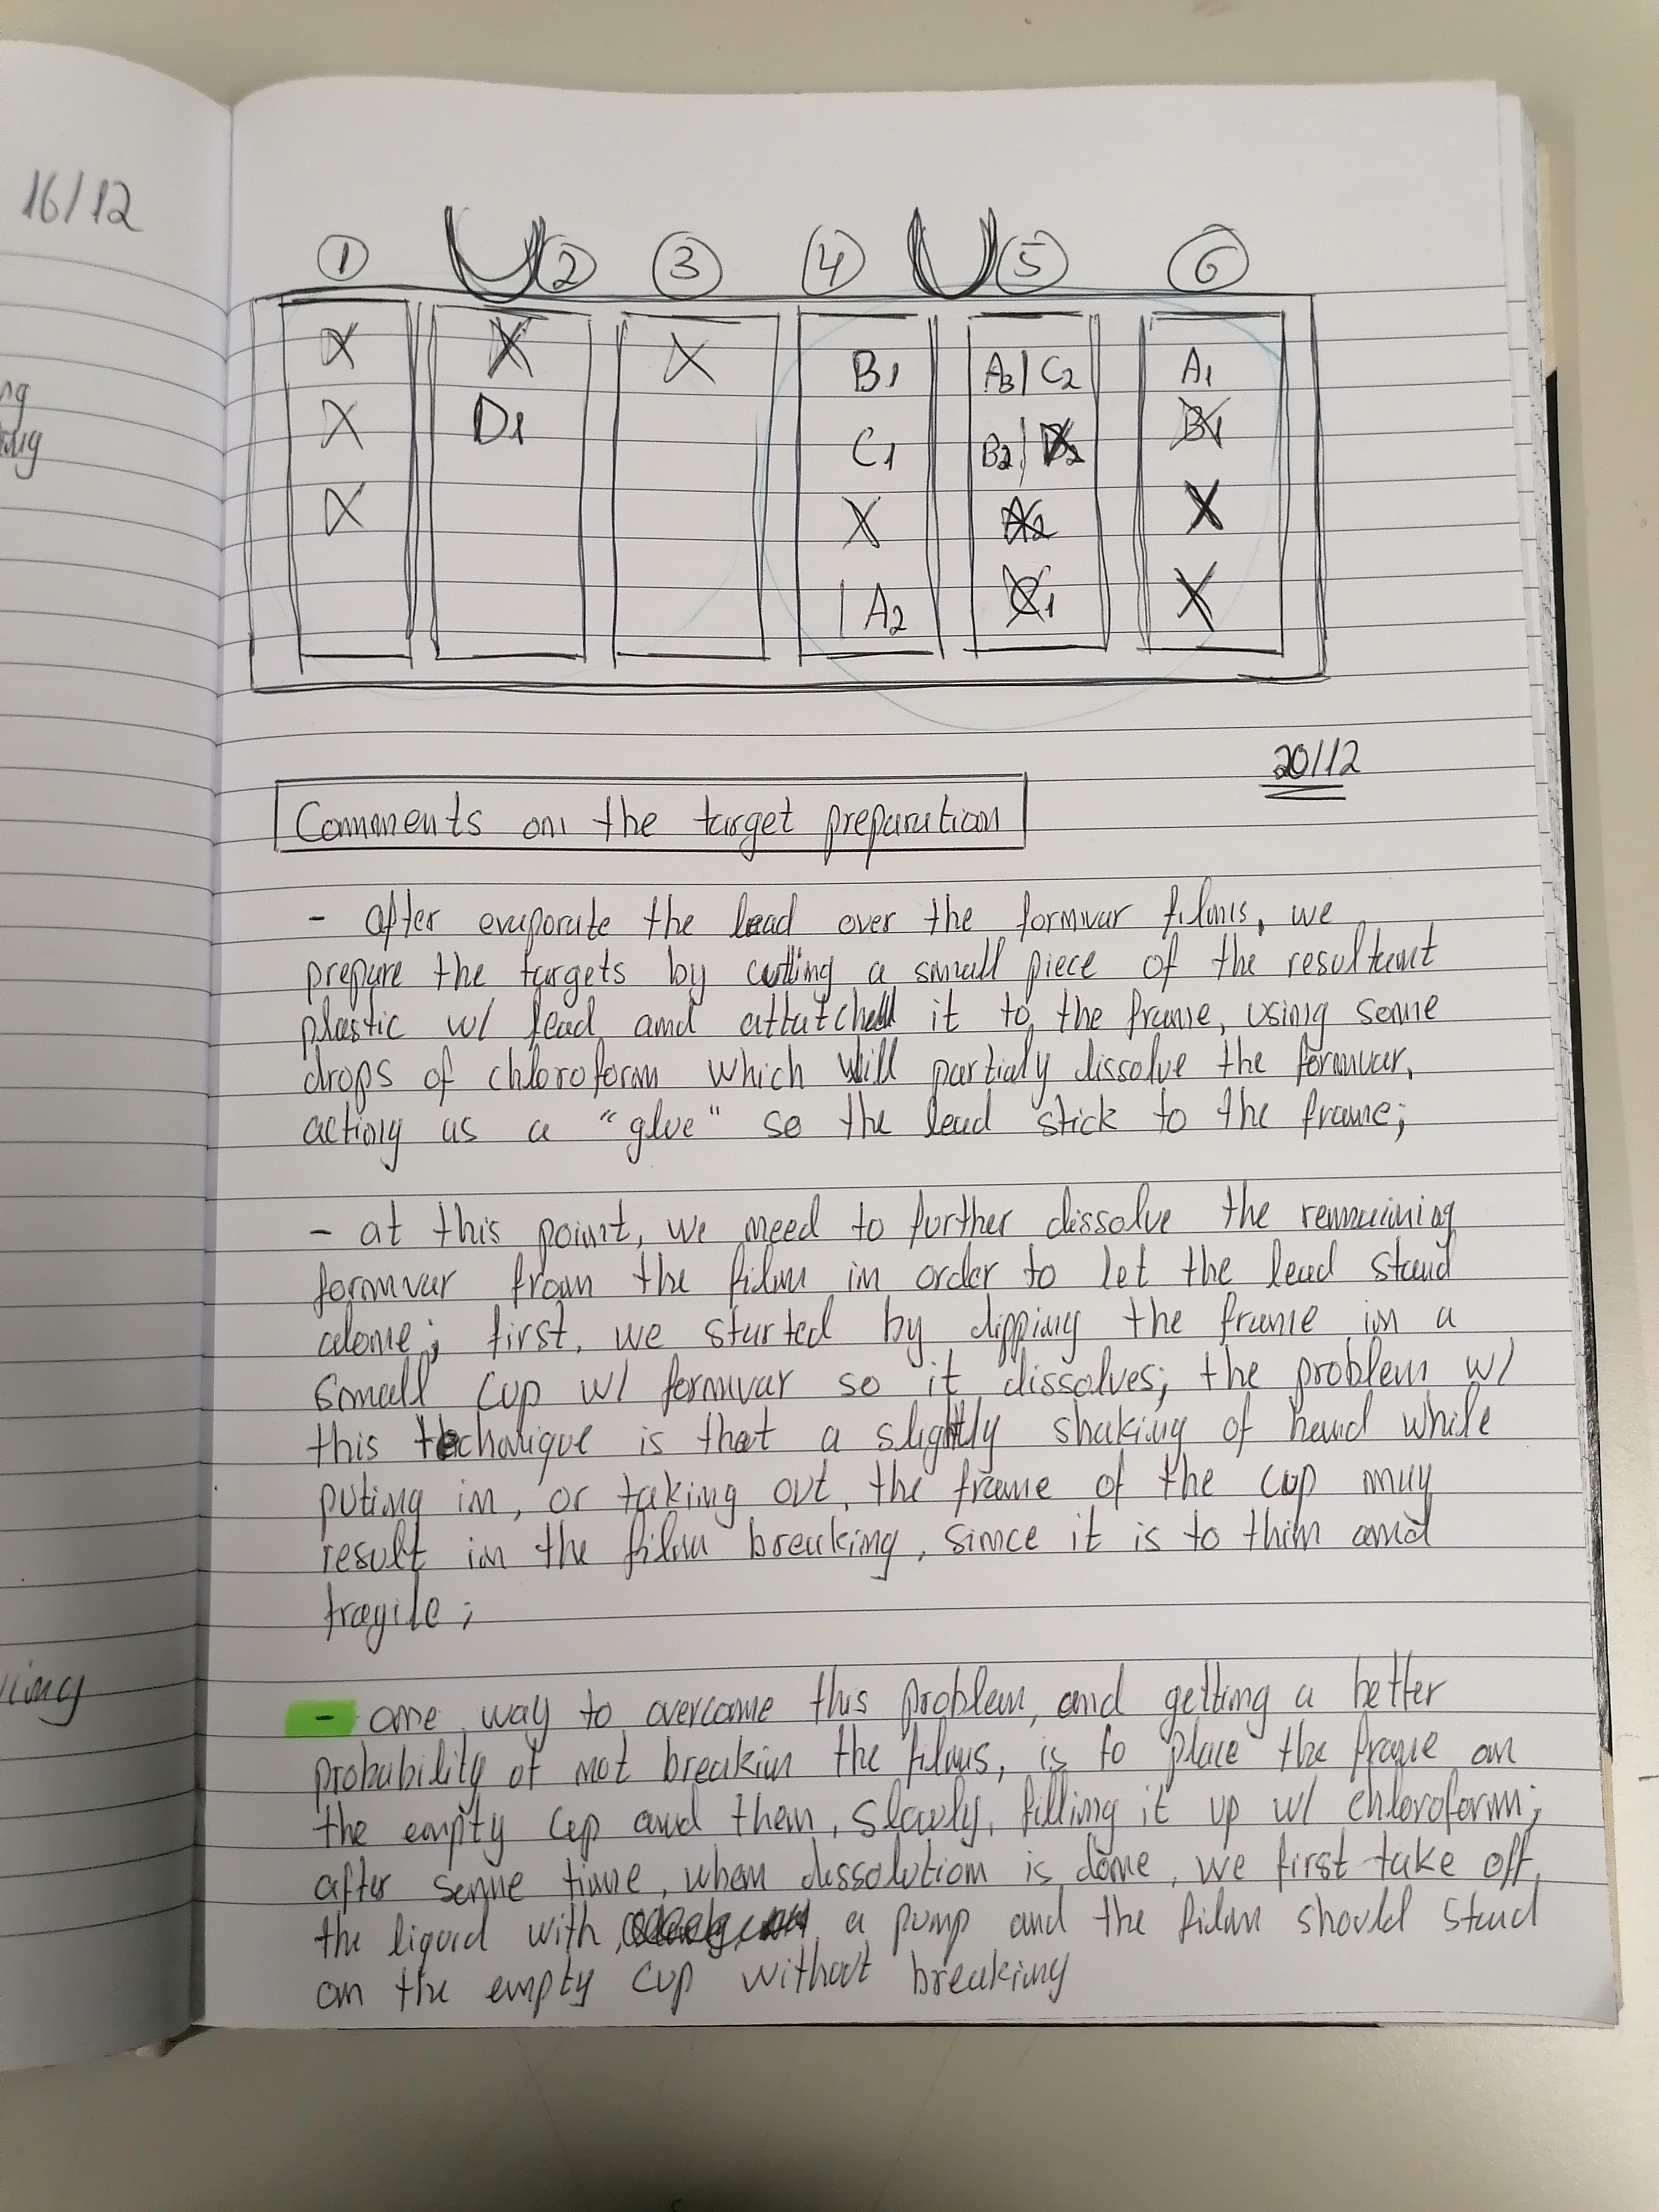 16/12
ng
ing
1 2 3 4 5 6
X X X B1 A3 | C2 A1
X D1 C1 B2 | D2 B1
X X A2 X
| A2 C1 X
20/12
Comments on the target preparation
- after evaporate the lead over the formvar films, we
prepare the targets by cutting a small piece of the resultant
plastic w/ lead and attatched it to the frame, using some
drops of chloroform which will partialy dissolve the formvar,
acting as a "glue" so the lead stick to the frame;
- at this point, we need to further dissolve the remaining
formvar from the film in order to let the lead stand
alone; first, we started by dipping the frame in a
small cup w/ formvar so it dissolves; the problem w/
this technique is that a slightly shaking of hand while
puting in, or taking out, the frame of the cup may
result in the film breaking, since it is to thin and
fragile;
- one way to overcome this problem, and getting a better
probability of not breakin the films, is to place the frame on
the empty cup and then, slowly, filling it up w/ chloroform;
after some time, when dissolution is done, we first take off
the liquid with, a pump and the film should stand
on the empty cup without breaking